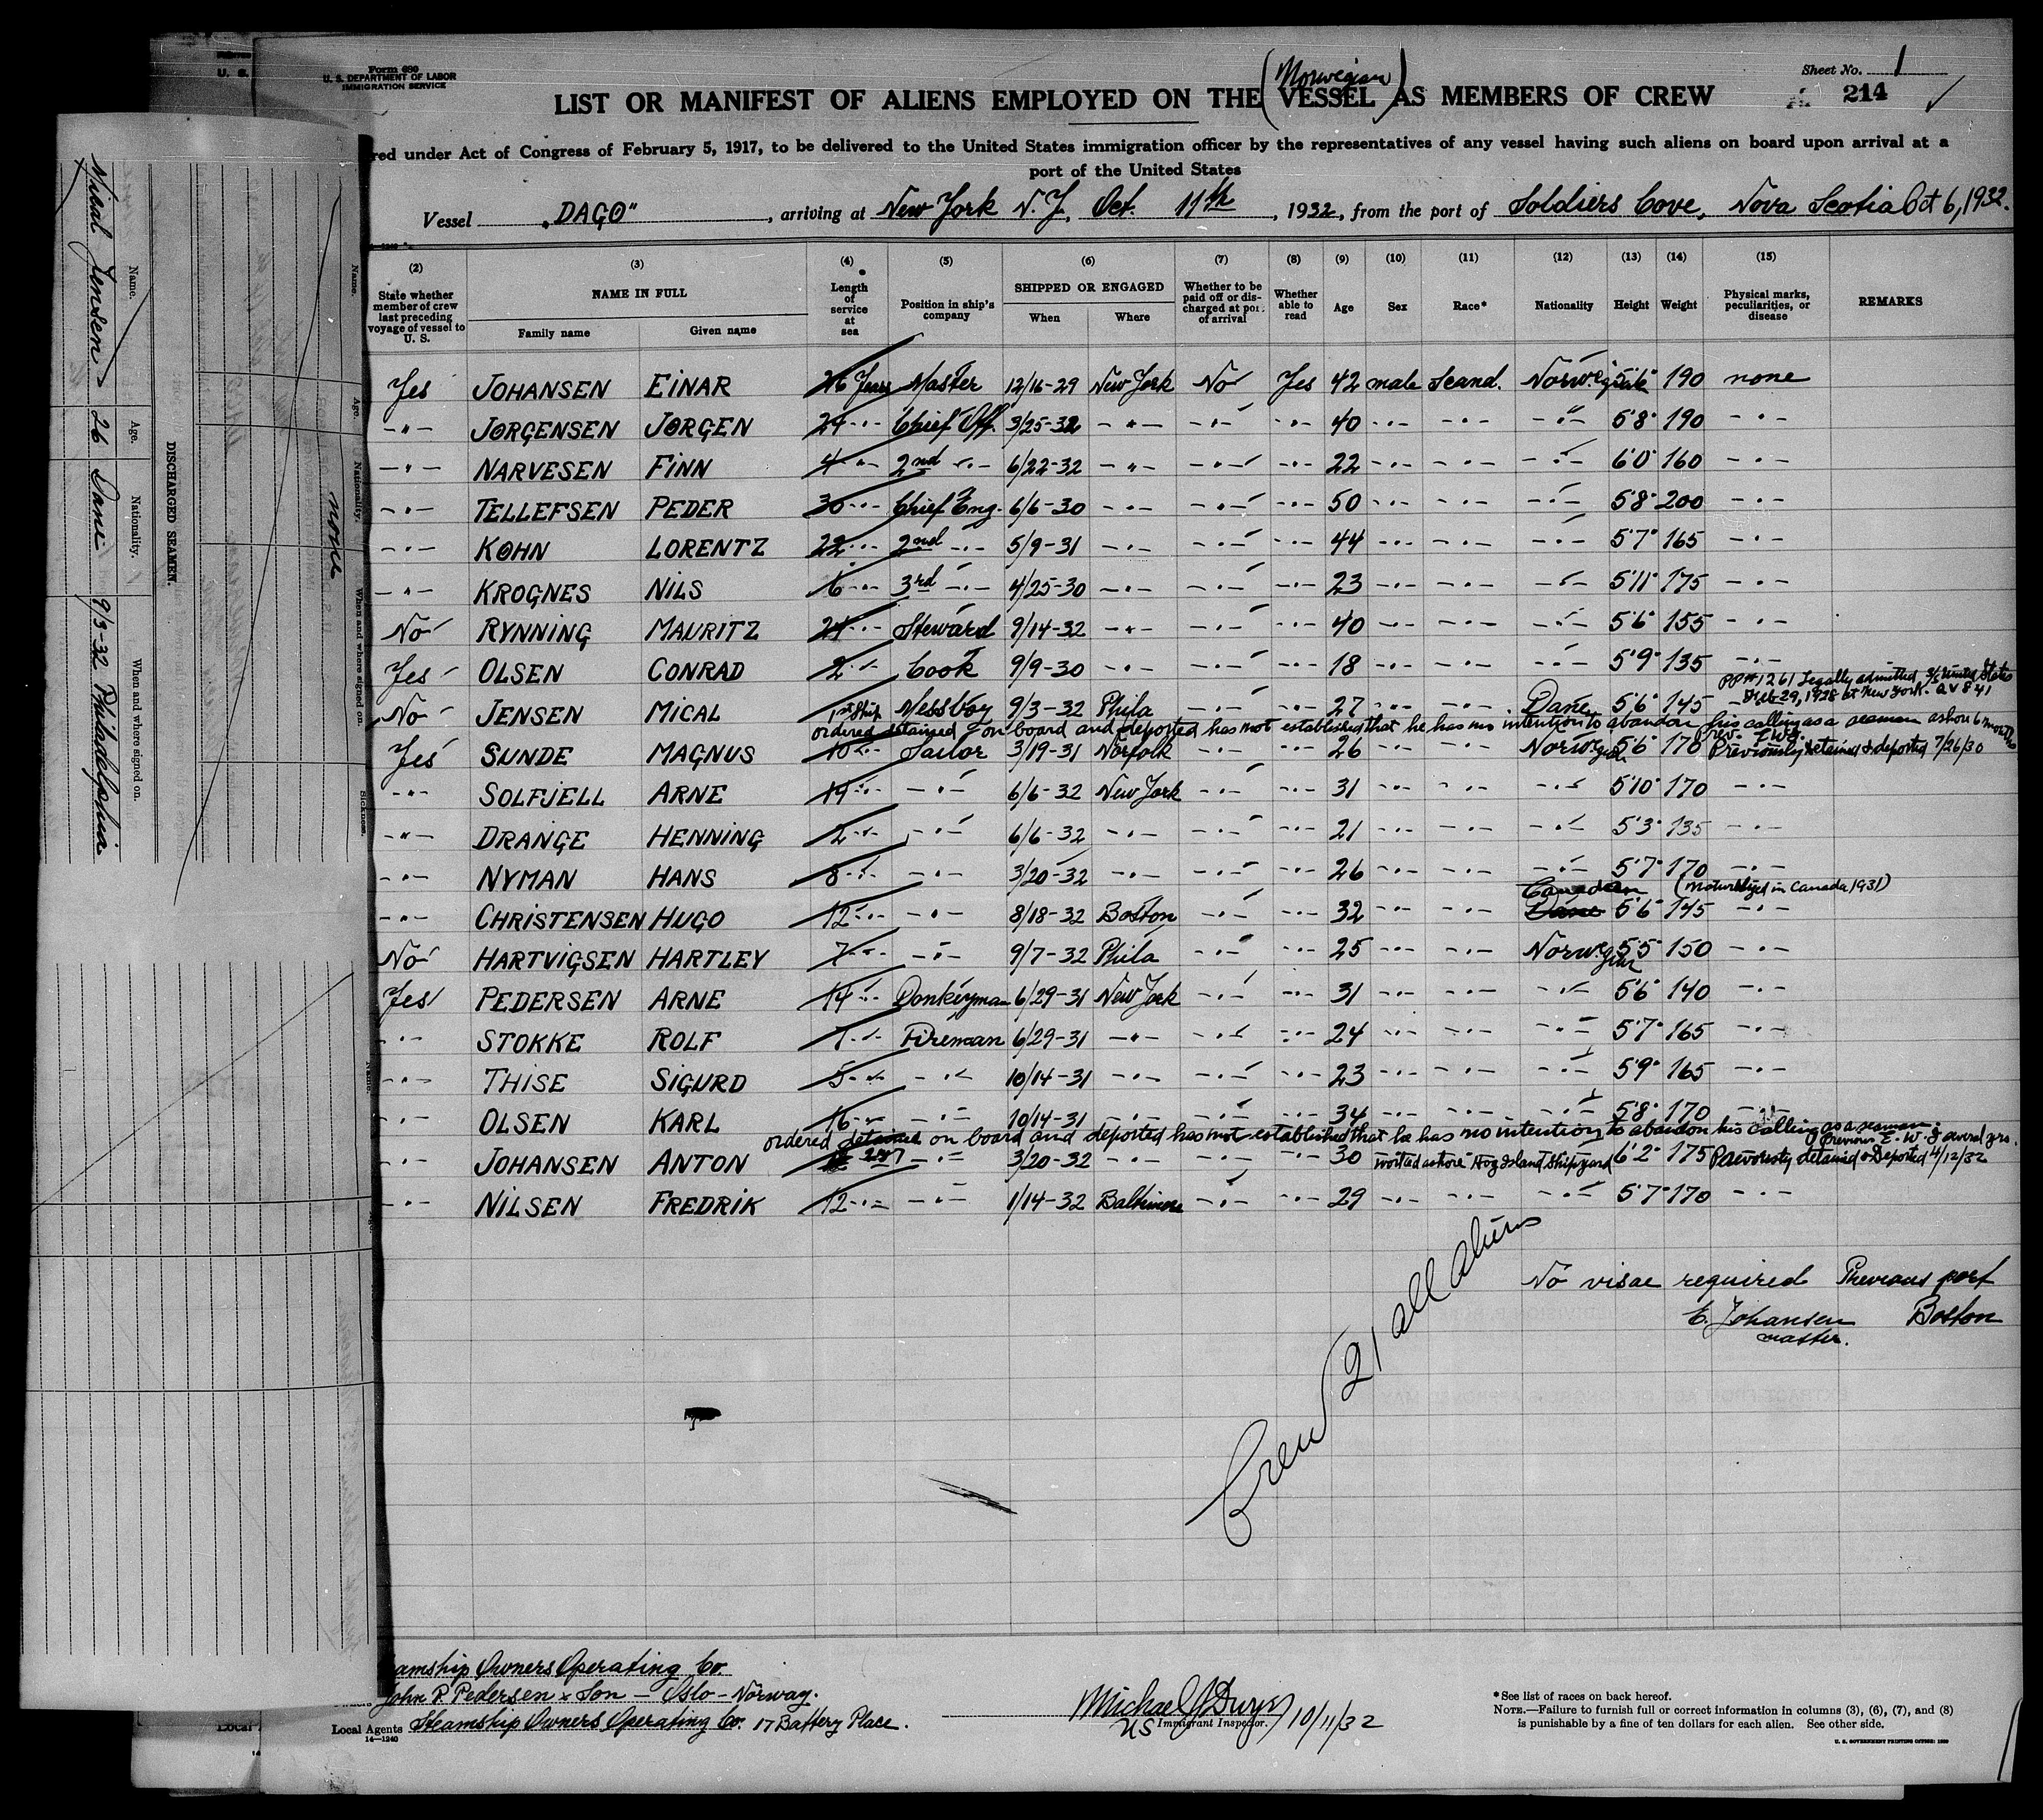 Form 680
U. S. DEPARTMENT OF LABOR
IMMIGRATION SERVICE
Sheet No. 1
214
(Norwegian)
LIST OR MANIFEST OF ALIENS EMPLOYED ON THE VESSEL AS MEMBERS OF CREW
red under Act of Congress of February 5, 1917, to be delivered to the United States immigration officer by the representatives of any vessel having such aliens on board upon arrival at a
port of the United States
Vessel "DAGO", arriving at New York N.Y., Oct. 11th, 1932, from the port of Soldiers Cove, Nova Scotia Oct 6, 1932.
(2) (3) (4) (5) (6) (7) (8) (9) (10) (11) (12) (13) (14) (15)
State whether member of crew last preceding voyage of vessel to U. S. NAME IN FULL Family name Given name Length of service at sea Position in ship's company SHIPPED OR ENGAGED When Where Whether to be paid off or discharged at port of arrival Whether able to read Age Sex Race* Nationality Height Weight Physical marks, peculiarities, or disease REMARKS
Yes JOHANSEN EINAR 26 Years Master 12/16-29 New York No Yes 42 male Scand. Norwegian 5'6" 190 none
-"- JØRGENSEN JØRGEN 24 -"- Chief Off. 3/25-32 -"- -"- -"- 40 -"- -"- -"- 5'8" 190 -"-
-"- NARVESEN FINN 4 -"- 2nd -"- 6/22-32 -"- -"- -"- 22 -"- -"- -"- 6'0" 160 -"-
-"- TELLEFSEN PEDER 30 -"- Chief Eng. 6/6-30 -"- -"- -"- 50 -"- -"- -"- 5'8" 200 -"-
-"- KØHN LORENTZ 22 -"- 2nd -"- 5/9-31 -"- -"- -"- 44 -"- -"- -"- 5'7" 165 -"-
-"- KROGNES NILS 6 -"- 3rd -"- 4/25-30 -"- -"- -"- 23 -"- -"- -"- 5'11" 175 -"-
No RYNNING MAURITZ 24 -"- Steward 9/14-32 -"- -"- -"- 40 -"- -"- -"- 5'6" 155 -"-
Yes OLSEN CONRAD 2 -"- Cook 9/9-30 -"- -"- -"- 18 -"- -"- -"- 5'9" 135 -"-
PP#1261 Legally admitted United States
Feb 29, 1928 at New York.
No JENSEN MICAL 1st Ship Messboy 9/3-32 Phila -"- -"- 27 -"- -"- Dane 5'6" 145
ordered detained on board and deported has not established that he has no intention to abandon his calling as a seaman ashore 6 months
Yes SUNDE MAGNUS 10 -"- Sailor 3/19-31 Norfolk -"- -"- 26 -"- -"- Norwegian 5'6" 170 Previously detained & deported 7/26/30
-"- SOLFJELL ARNE 14 -"- -"- 6/6-32 New York -"- -"- 31 -"- -"- -"- 5'10" 170 -"-
-"- DRANGE HENNING 2 -"- -"- 6/6-32 -"- -"- -"- 21 -"- -"- -"- 5'3" 135 -"-
-"- NYMAN HANS 8 -"- -"- 3/20-32 -"- -"- -"- 26 -"- -"- -"- 5'7" 170 -"-
Canadian (naturalized in Canada 1931)
-"- CHRISTENSEN HUGO 12 -"- -"- 8/18-32 Boston -"- -"- 32 -"- -"- Dane 5'6" 145 -"-
No HARTVIGSEN HARTLEY 7 -"- -"- 9/7-32 Phila -"- -"- 25 -"- -"- Norwegian 5'5" 150 -"-
Yes PEDERSEN ARNE 14 -"- Donkeyman 6/29-31 New York -"- -"- 31 -"- -"- -"- 5'6" 140 -"-
-"- STOKKE ROLF 7 -"- Fireman 6/29-31 -"- -"- -"- 24 -"- -"- -"- 5'7" 165 -"-
-"- THISE SIGURD 5 -"- -"- 10/14-31 -"- -"- -"- 23 -"- -"- -"- 5'9" 165 -"-
-"- OLSEN KARL 16 -"- -"- 10/14-31 -"- -"- -"- 34 -"- -"- -"- 5'8" 170 -"-
ordered detained on board and deported has not established that he has no intention to abandon his calling as a seaman
previous E.W.I several yrs.
-"- JOHANSEN ANTON -"- 3/20-32 -"- -"- -"- 30 worked ashore Hog Island Shipyard 6'2" 175 Previously detained & Deported 4/12/32
-"- NILSEN FREDRIK 12 -"- -"- 1/14-32 Baltimore -"- -"- 29 -"- -"- -"- 5'7" 170 -"-
Crew 21 all aliens
No visae required Previous port
E. Johansen Boston
master.
amship Owners Operating Co.
John P. Pedersen & Son - Oslo - Norway.
Local Agents Steamship Owners Operating Co. 17 Battery Place.
14-1240
Michael J Dwyer 10/11/32
US Immigrant Inspector.
*See list of races on back hereof.
NOTE.—Failure to furnish full or correct information in columns (3), (6), (7), and (8)
is punishable by a fine of ten dollars for each alien. See other side.
U. S. GOVERNMENT PRINTING OFFICE: 1930
DISCHARGED SEAMEN.
Name. Age. Nationality. When and where signed on.
Mical Jensen 26 Dane 9/3-32 Philadelphia
Name. Age. Nationality. When and where signed on. Sickness.
none